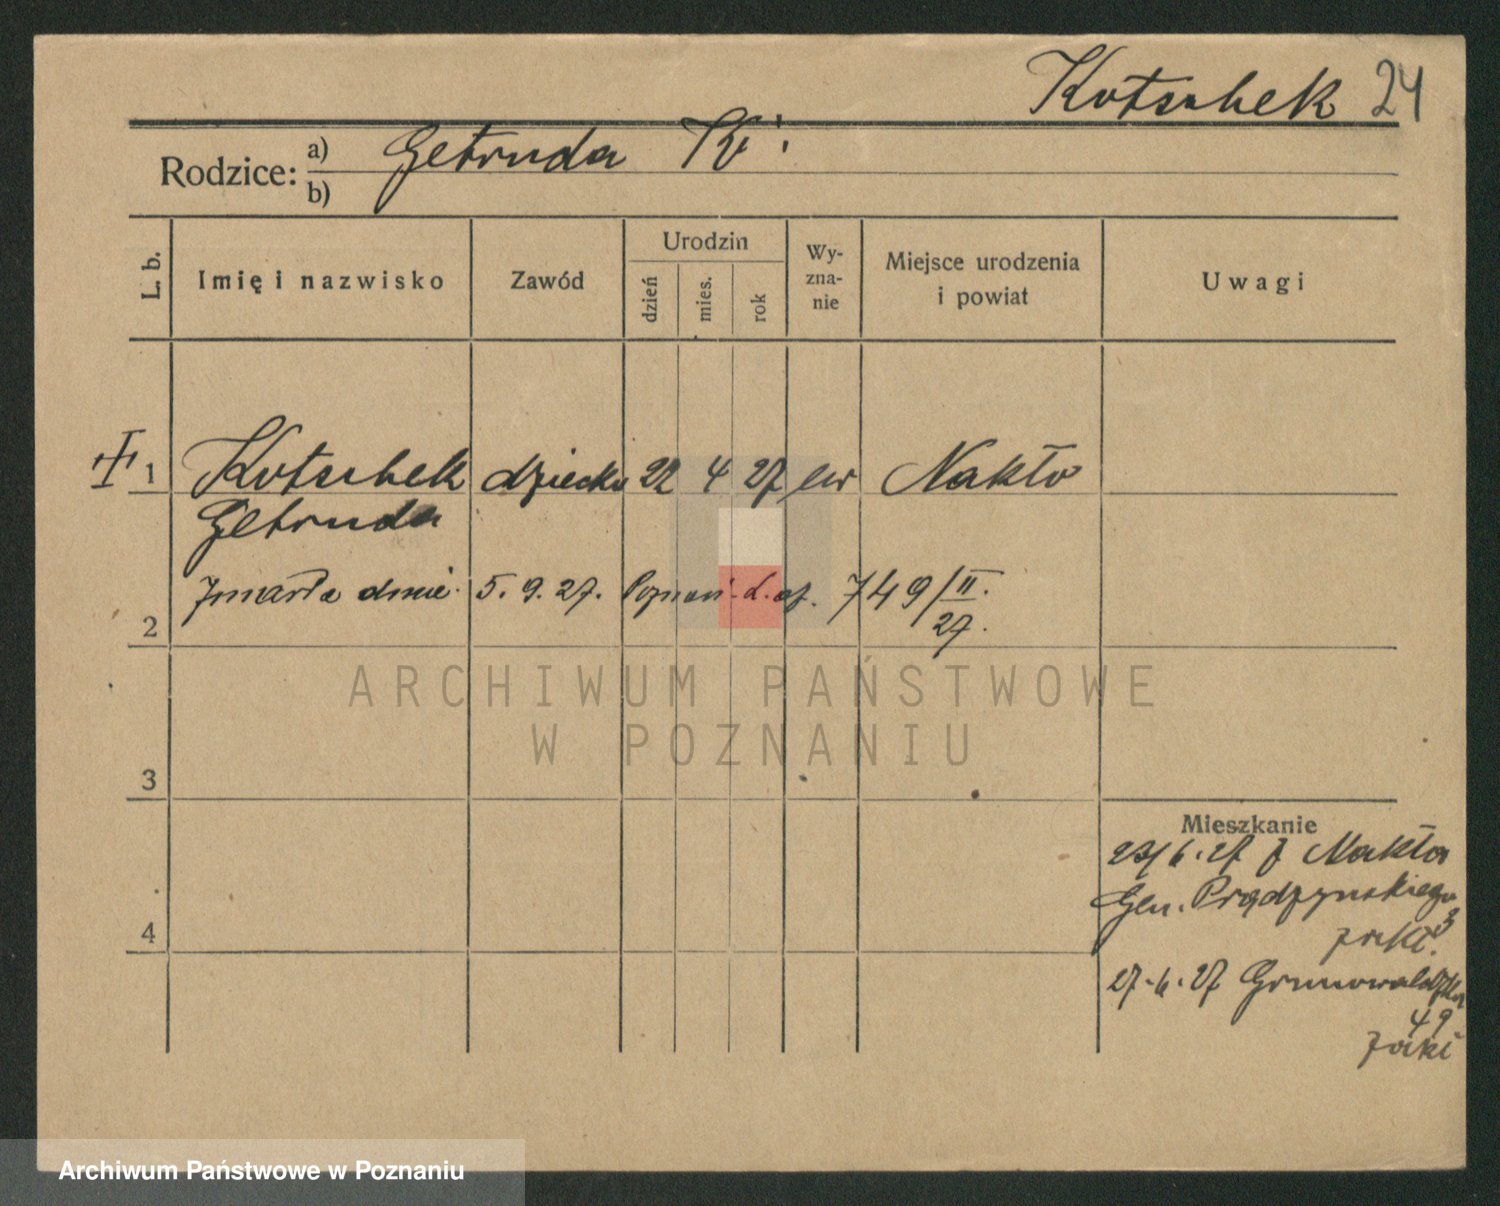 Kotschek 24
Rodzice: a) Getruda K.
b)
L. b. Imię i nazwisko Zawód Urodzin dzień mies. rok Wy-zna-nie Miejsce urodzenia i powiat Uwagi
1 Kotschek dziecko 22 4 27 ew Nakło
Getruda
zmarła dnia 5. 9. 27. Poznań 749/II.
27.
2
ARCHIWUM PAŃSTWOWE
W POZNANIU
3
Mieszkanie
23/6.27 z Nakła
Gen. Prądzynskiego
3
4
27.6.27 Grunwaldzka
49
Archiwum Państwowe w Poznaniu